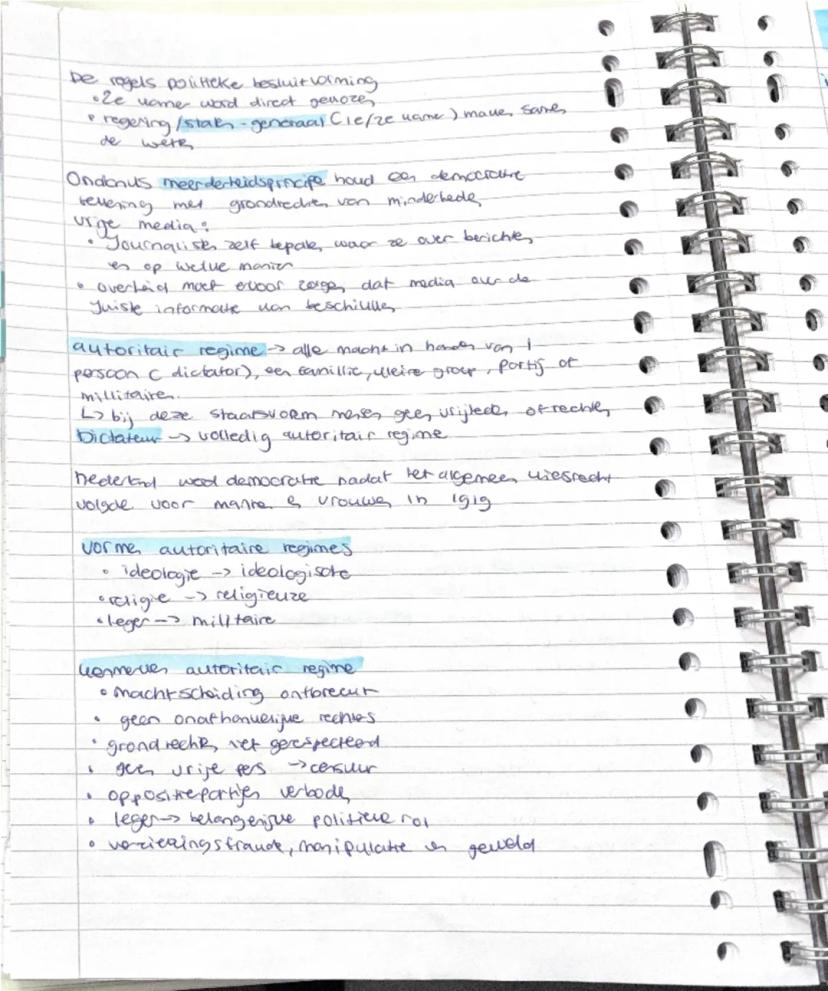 De regels politieke besluitvorming
• 2e kamer word direct gekozen
• regering/staten-generaal (1e/2e kamer) maken samen
de wetten
Ondanks meerderheidsprincipe houd een democratie
rekening met grondrechten van minderheden
vrije media:
• Journalisten zelf bepalen waar ze over berichten
en op welke manier
• overheid moet ervoor zorgen dat media over de
juiste informatie kan beschikken
autoritair regime -> alle macht in handen van 1
persoon (dictator), een famillie, kleine groep, partij of
millitairen.
↳ bij deze staatsvorm mensen geen vrijheden of rechten
Dictatuur -> volledig autoritair regime
Nederland werd democratie nadat het algemeen kiesrecht
volgde voor mannen en vrouwen in 1919
vormen autoritaire regimes
• ideologie -> ideologische
• religie -> religieuze
• leger -> militaire
kenmerken autoritair regime
• machtscheiding ontbreekt
• geen onafhankelijke rechters
• grondrechten niet gerespecteerd
• geen vrije pers -> censuur
• oppositiepartijen verboden
• leger -> belangerijke politieke rol
• verkiezingsfraude, manipulatie en geweld